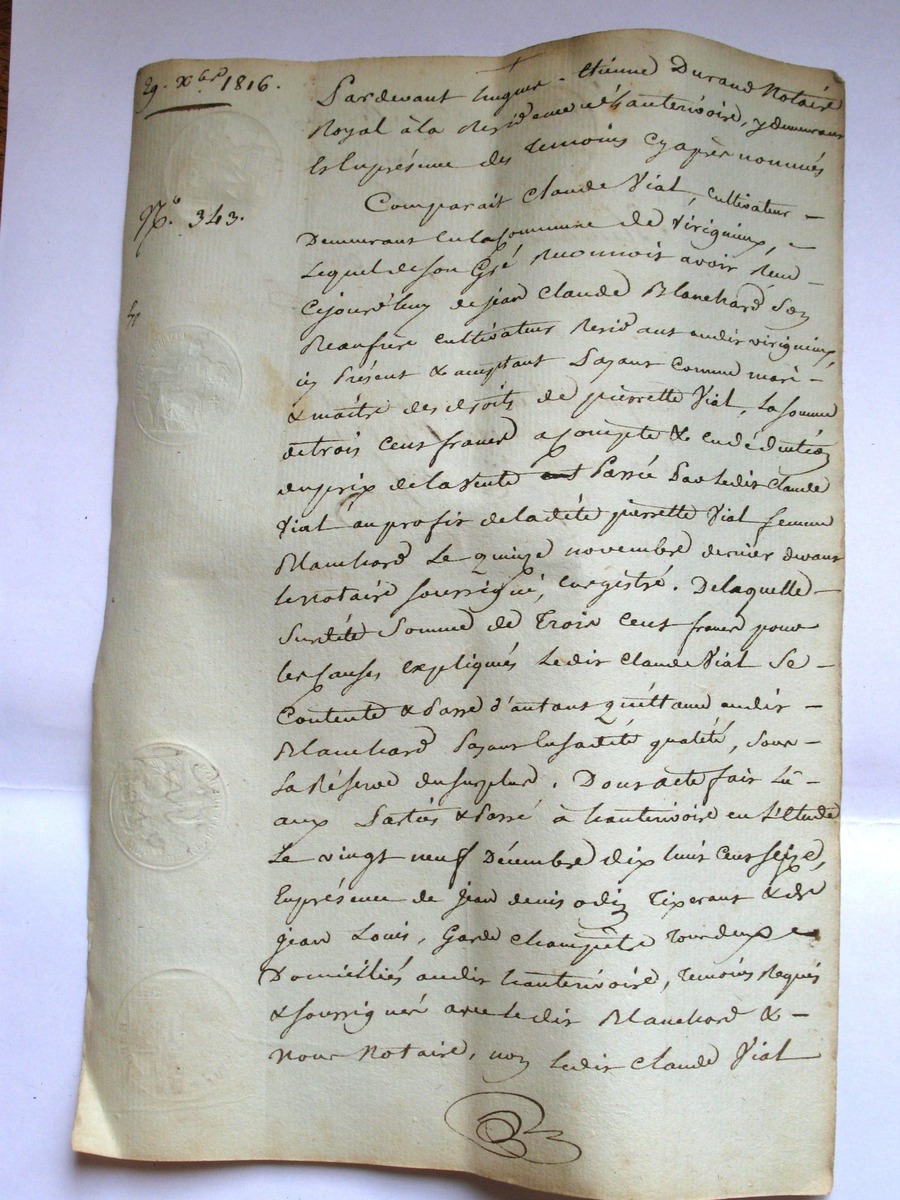 29. Xbre 1816.
Pardevant hugue-Etienne Durand Notaire
Royal à la Residence d'hauterivoire, y demeurant
Et En présence des Temoins Cy après nommés
No. 343.
Comparait Claude Vial, cultivateur
Demeurant En la Commune de Virigneux,
Lequel de son Gré Reconnoit avoir Reçu
Cejourd'huy de jean Claude Blanchard Son
Beaufrere cultivateur Residant audit virigneux,
icy Présent & acceptant Payant Comme mari
& maître des droits de pierrette Vial, La Somme
de trois Cens francs a Compte & en déduction
du prix de la Vente Passée Par Ledit Claude
Vial au profit de ladite pierrette Vial femme
Blanchard Le quinze novembre dernier devant
le notaire soussigné, Enregistré. De laquelle
Susdite Somme de Trois Cens francs pour
les Causes Expliquées Ledit Claude Vial Se
Contente & Passe d'autant quittance audit
Blanchard Payant En sadite qualité, Sous
La Réserve du surplus. Dont acte fait Lû
aux Parties & Passé à hauterivoire en L'Etude
Le vingt neuf Décembre dix huit Cens seize,
En présence de jean denis odin Tixerant & de
jean Louis, Garde champêtre Tous deux
Domiciliés audit hauterivoire, Temoins Requis
& soussignés avec Ledit Blanchard &
Nous Notaire, non Ledit Claude Vial